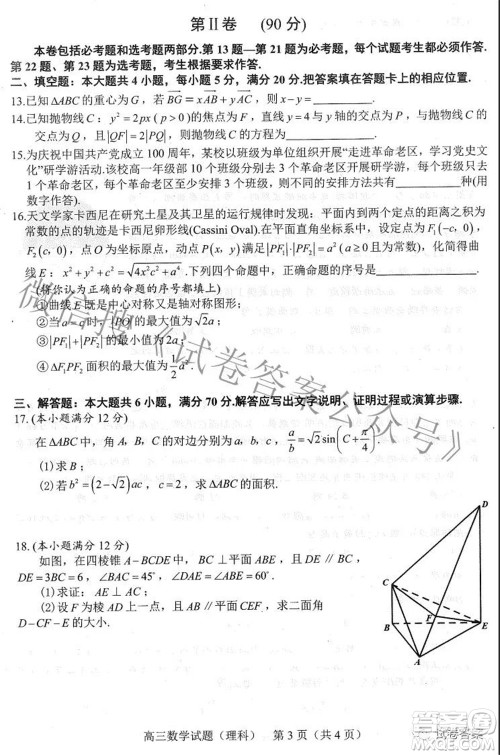 第Ⅱ卷 (90分)
本卷包括必考题和选考题两部分.第13题—第21题为必考题，每个试题考生都必须作答.
第22题、第23题为选考题，考生根据要求作答.
二、填空题：本大题共4小题，每小题5分，满分20分.把答案填在答题卡上的相应位置.
13.已知ΔABC的重心为G，若BG=xAB+yAC，则x−y=________.
14.已知抛物线C：y²=2px(p>0)的焦点为F，直线y=4与y轴的交点为P，与抛物线C的
交点为Q，且|QF|=2|PQ|，则抛物线的方程为________.
15.为庆祝中国共产党成立100周年，某校以班级为单位组织开展“走进革命老区，学习党史文
化”研学游活动.该校高一年级部10个班级分别去3个革命老区开展研学游，每个班级只去
1个革命老区，每个革命老区至少安排3个班级，则不同的安排方法共有________(用
数字作答).
16.天文学家卡西尼在研究土星及其卫星的运行规律时发现：平面内到两个定点的距离之积为
常数的点的轨迹是卡西尼卵形线(Cassini Oval).在平面直角坐标系中，设定点F₁(−c, 0)，
F₂(c, 0)，点O为坐标原点，动点P(x, y)满足|PF₁|·|PF₂|=a²(a≥0且为常数)，化简得曲
线E：x²+y²+c²=√(4x²c²+a⁴).下列四个命题中，正确命题的序号是________.
(将你认为正确的命题的序号都填上)
①曲线E既是中心对称又是轴对称图形；
②当a=c时，|PO|的最大值为√2a；
③|PF₁|+|PF₂|的最小值为2a；
④ΔF₁PF₂面积的最大值为1/2a².
三、解答题：本大题共6小题，满分70分.解答应写出文字说明、证明过程或演算步骤.
17.(本小题满分12分)
在ΔABC中，角A，B，C的对边分别为a，b，c，a/b=√2sin(C+π/4).
(1)求B；
(2)若b²=(2−√2)ac，c=2，求ΔABC的面积.
18.(本小题满分12分)
如图，在四棱锥A−BCDE中，BC⊥平面ABE，且DE∥BC，
DE=3BC=6，∠BAC=45°，∠DAE=∠ABE=60°.
(1)求证：AE⊥AC；
(2)设F为棱AD上一点，且CD⊥平面CEF，求二面角
D−CF−E的大小.
D
C
B
F
E
A
微信搜《试卷答案公众号》
高三数学试题（理科） 第3页（共4页）
试卷答案